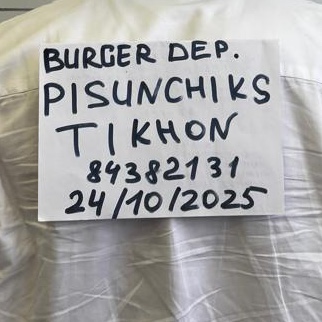 BURGER DEP.
PISUNCHIKS
TIKHON
84382131
24/10/2025